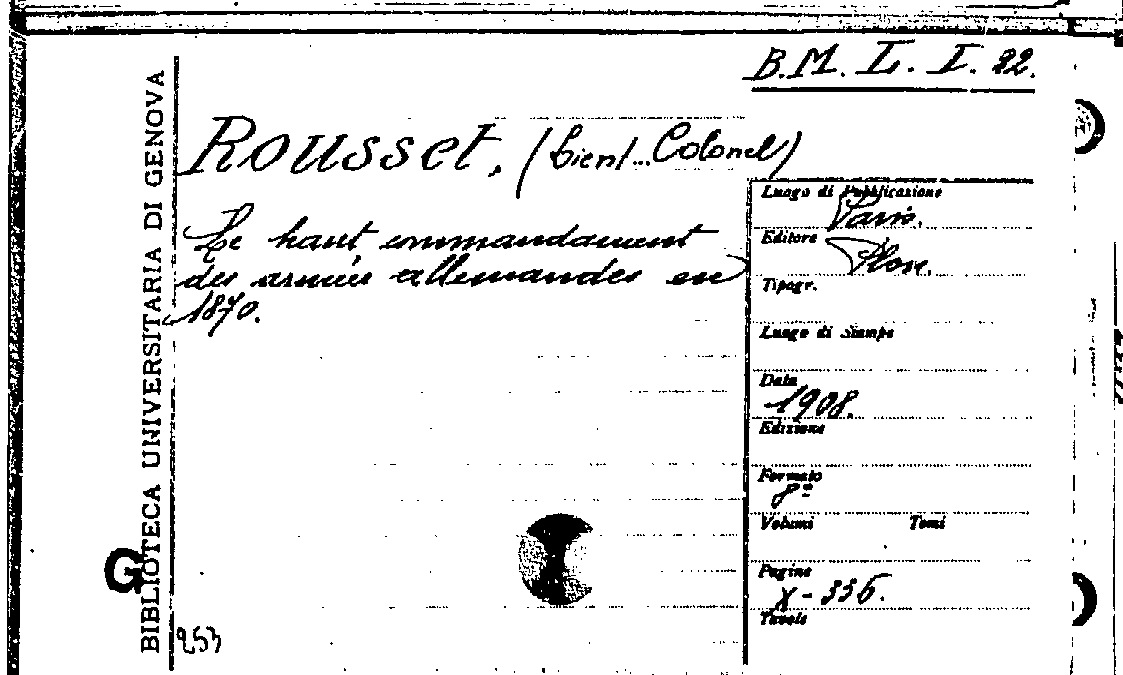 B.M. L. I. 22.
BIBLIOTECA UNIVERSITARIA DI GENOVA
Rousset, (Lieut. Colonel)
Le haut commandament
des armées allemandes en
1870.
Luogo di Pubblicazione
Paris.
Editore
Plon.
Tipogr.
Luogo di Stampa
Data
1908.
Edizione
Formato
8°
Volumi Tomi
Pagine
X-336.
Tavole
G
253